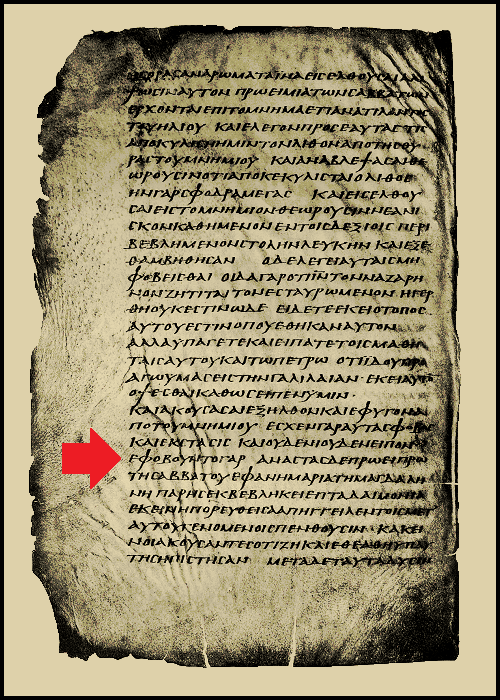 ΗΓΟΡΑCΑΝΑΡΩΜΑΤΑΙΝΑΕΙCΕΛΘΟΥCΑΙΑΛΙ
ΨΩCΙΝΑΥΤΟΝ ΠΡΩΕΙΜΙΑΤΩΝCΑΒΒΑΤΩΝ
ΕΡΧΟΝΤΑΙΕΠΙΤΟΜΝΗΜΑΕΤΙΑΝΑΤΙΛΑΝΤΟC
ΤΟΥΗΛΙΟΥ ΚΑΙΕΛΕΓΟΝΠΡΟCΕΑΥΤΑCΤΙC
ΑΠΟΚΥΛΙCΗΗΜΙΝΤΟΝΛΙΘΟΝΑΠΟΤΗCΘΥ
ΡΑCΤΟΥΜΝΗΜΙΟΥ ΚΑΙΑΝΑΒΛΕΨΑCΑΙΘΕ
ΩΡΟΥCΙΝΟΤΙΑΠΟΚΕΚΥΛΙCΤΑΙΟΛΙΘΟC
ΗΝΓΑΡCΦΟΔΡΑΜΕΓΑC ΚΑΙΕΙCΕΛΘΟΥ
CΑΙΕΙCΤΟΜΝΗΜΙΟΝΘΕΩΡΟΥCΙΝΝΕΑΝΙ
CΚΟΝΚΑΘΗΜΕΝΟΝΕΝΤΟΙCΔΕΞΙΟΙC ΠΕΡΙ
ΒΕΒΛΗΜΕΝΟΝCΤΟΛΗΝΛΕΥΚΗΝ ΚΑΙΕΞΕ
ΘΑΜΒΗΘΗCΑΝ ΟΔΕΛΕΓΕΙΑΥΤΑΙCΜΗ
ΦΟΒΕΙCΘΑΙ ΟΙΔΑΓΑΡΟΤΙΙΝΤΟΝΝΑΖΑΡΗ
ΝΟΝΖΗΤΙΤΑΙΤΟΝΕCΤΑΥΡΩΜΕΝΟΝ ΗΓΕΡ
ΘΗΟΥΚΕCΤΙΝΩΔΕ ΕΙΔΕΤΕΕΚΕΙΟΤΟΠΟC
ΑΥΤΟΥΕCΤΙΝΟΠΟΥΕΘΗΚΑΝΑΥΤΟΝ
ΑΛΛΑΥΠΑΓΕΤΕΚΑΙΕΙΠΑΤΕΤΟΙCΜΑΘΗ
ΤΑΙCΑΥΤΟΥΚΑΙΤΩΠΕΤΡΩ ΟΤΙΙΔΟΥΠΡΟ
ΑΓΩΥΜΑCΕΙCΤΗΝΓΑΛΙΛΑΙΑΝ ΕΚΕΙΑΥΤΟ
ΟΨΕCΘΑΙΚΑΘΩCΕΙΠΕΝΥΜΙΝ
ΚΑΙΑΚΟΥCΑCΑΙΕΞΗΛΘΟΝΚΑΙΕΦΥΓΟΝΑΠΟ
ΤΟΥΜΝΗΜΙΟΥ ΕCΧΕΝΓΑΡΑΥΤΑCΦΟΒΟC
ΚΑΙΕΚCΤΑCΙC ΚΑΙΟΥΔΕΝΙΟΥΔΕΝΕΙΠΟΝ
ΕΦΟΒΟΥΝΤΟΓΑΡ ΑΝΑCΤΑCΔΕΠΡΩΕΙΠΡΩ
ΤΗCΑΒΒΑΤΟΥΕΦΑΝΗΜΑΡΙΑΤΗΜΑΓΔΑΛΗ
ΝΗ ΠΑΡΗCΕΚΒΕΒΛΗΚΕΙΕΠΤΑΔΑΙΜΟΝΙΑ
ΕΚΕΙΝΗΠΟΡΕΥΘΕΙCΑΑΠΗΓΓΕΙΛΕΝΤΟΙCΜΕΤ
ΑΥΤΟΥΓΕΝΟΜΕΝΟΙCΠΕΝΘΟΥCΙΝ ΚΑΚΕΙ
ΝΟΙΑΚΟΥCΑΝΤΕCΟΤΙΖΗΚΑΙΕΘΕΑΘΗΥΠΑΥ
ΤΗCΗΠΙCΤΗCΑΝ ΜΕΤΑΔΕΤΑΥΤΑΔΥCΙΝ